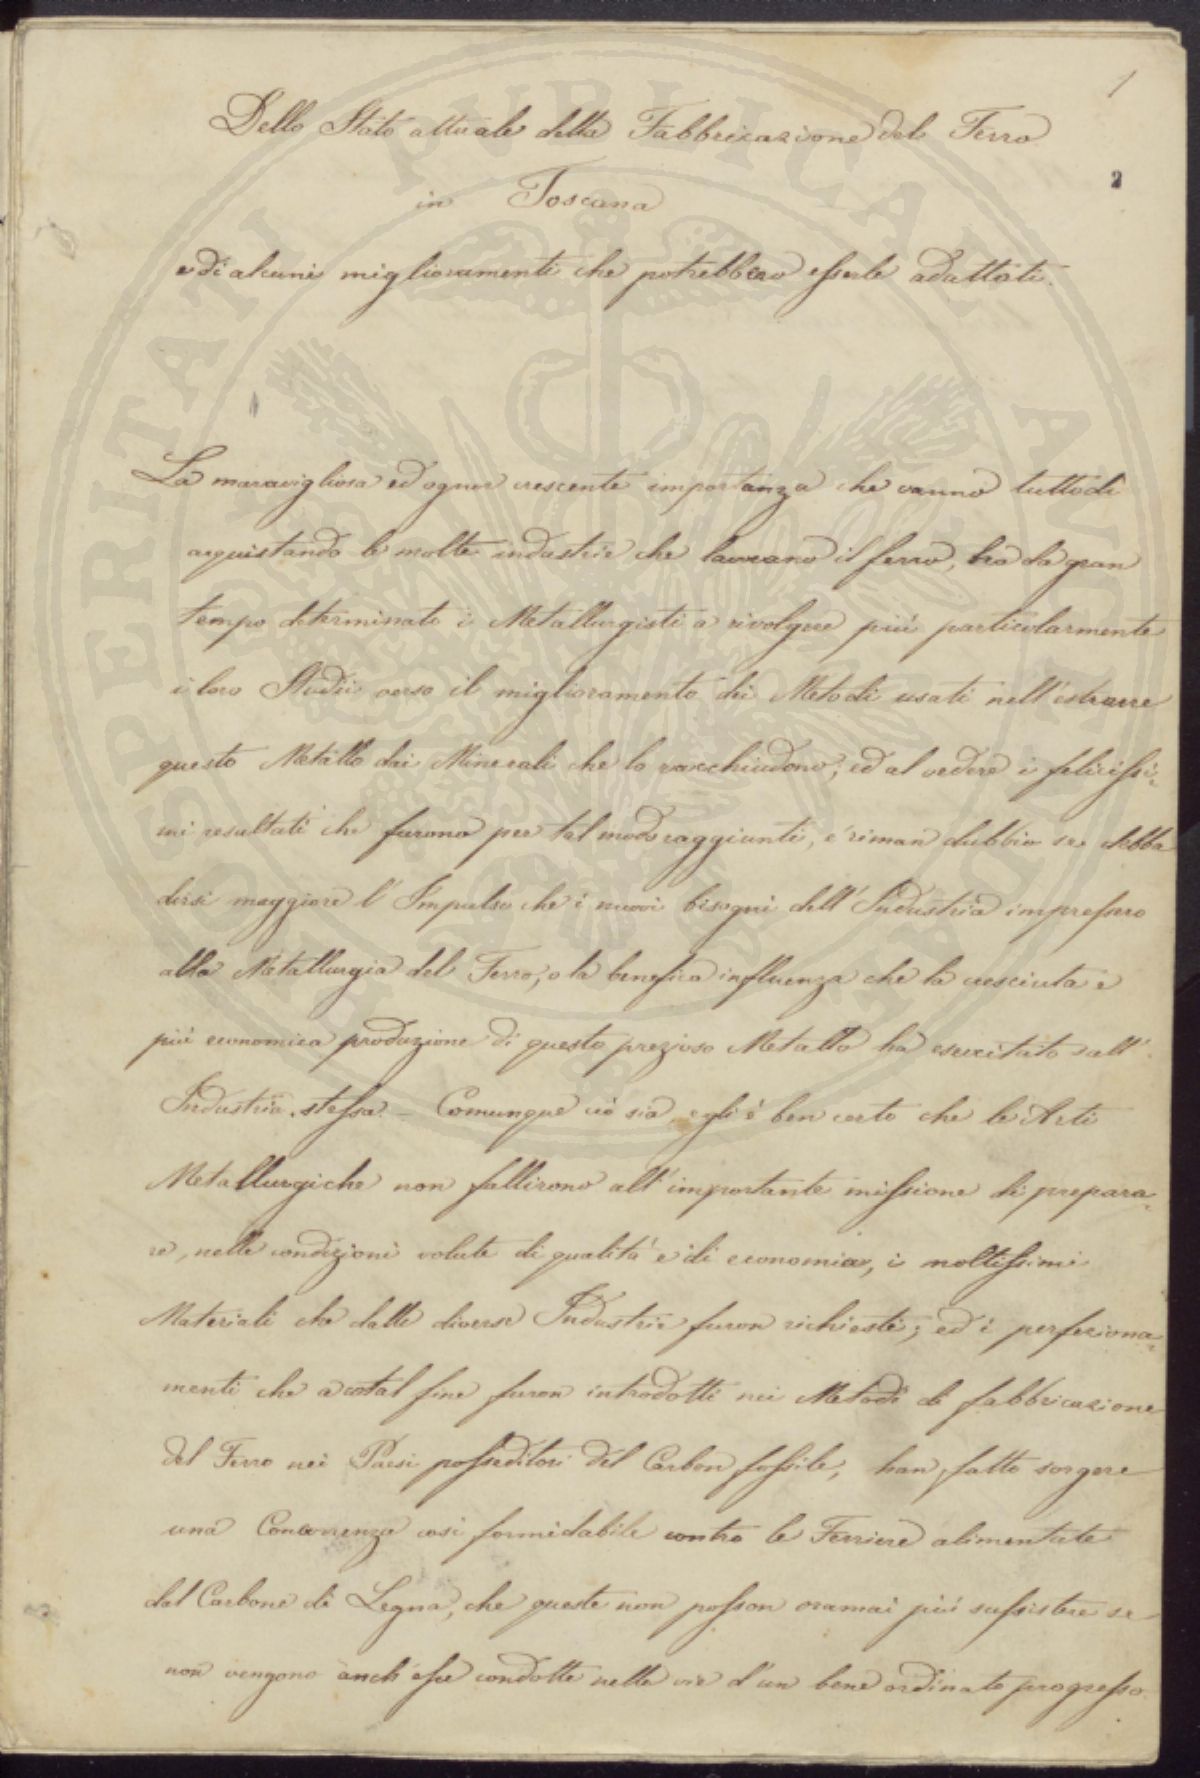 1
2
Dello Stato attuale della Fabbricazione del Ferro
in Toscana
e di alcuni miglioramenti che potrebbero esserle adattati.
La maravigliosa ed ognor crescente importanza che vanno tuttodì
acquistando le molte industrie che lavorano il ferro, ha da gran
tempo determinato i Metallurgisti a rivolgere più particolarmente
i loro Studii verso il miglioramento dei Metodi usati nell'estrarre
questo Metallo dai Minerali che lo racchiudono; ed al vedere i felicissi-
mi resultati che furono per tal modo raggiunti, e' riman dubbio se debba
dirsi maggiore l'Impulso che i nuovi bisogni dell'Industria impressero
alla Metallurgia del Ferro, o la benefica influenza che la cresciuta e
più economica produzione di questo prezioso Metallo ha esercitato sull'
Industria stessa. – Comunque ciò sia, egli è ben certo che le Arti
Metallurgiche non fallirono all'importante missione di prepara-
re, nelle condizioni volute di qualità e di economia, i moltissimi
Materiali che dalle diverse Industrie furon richiesti; ed i perfeziona-
menti che a cotal fine furon introdotti nei Metodi di fabbricazione
del Ferro nei Paesi posseditori del Carbon fossile, han fatto sorgere
una Concorrenza così formidabile contro le Ferriere alimentate
dal Carbone di Legna, che queste non posson oramai più sussistere se
non vengono anch'esse condotte nelle vie d'un bene ordinato progresso
PROSPERITATI PVBLICAE AVGENDAE